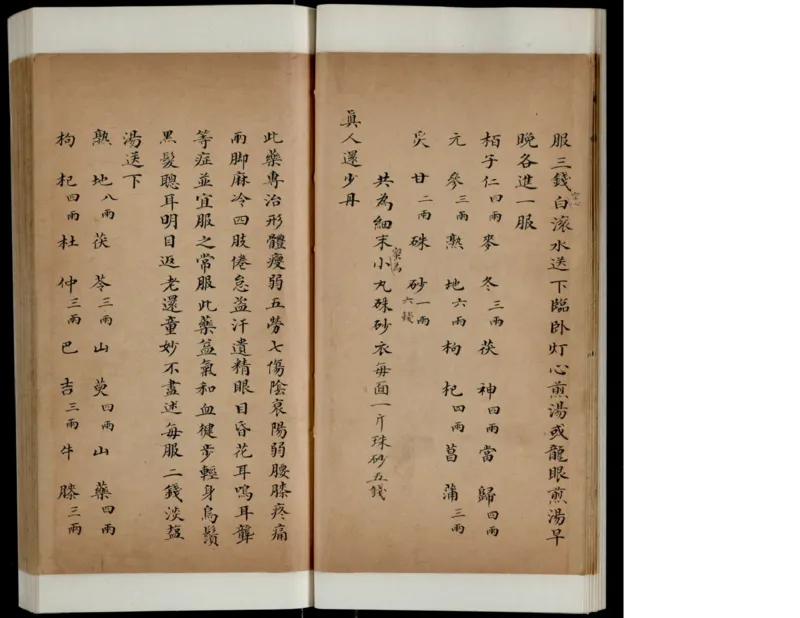 服三錢白滾水送下臨卧灯心煎湯或龍眼煎湯早
空心
晚各進一服
栢子仁四兩麥冬三兩茯神四兩當歸四兩
元參三兩熟地六兩枸杞四兩菖蒲三兩
炙甘二兩硃砂一兩
六錢
共為細末小丸硃砂衣每面一斤珠砂五錢
蜜為
真人還少丹
此藥專治形體瘦弱五勞七傷陰衰陽弱腰膝疼痛
兩脚麻冷四肢倦怠盗汗遺精眼目昏花耳鳴耳聾
等症並宜服之常服此藥益氣和血健步輕身烏鬚
黑髮聰耳明目返老還童妙不盡述每服二錢淡盐
湯送下
熟地八兩茯苓三兩山萸四兩山藥四兩
枸杞四兩杜仲三兩巴吉三兩牛膝三兩